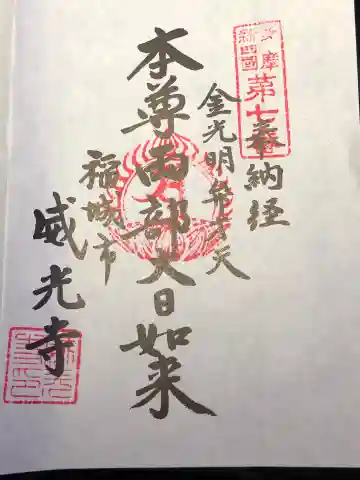 多摩
新四国
第七番
奉納経
金光明弁才天
本尊両部大日如来
稲城市
威光寺